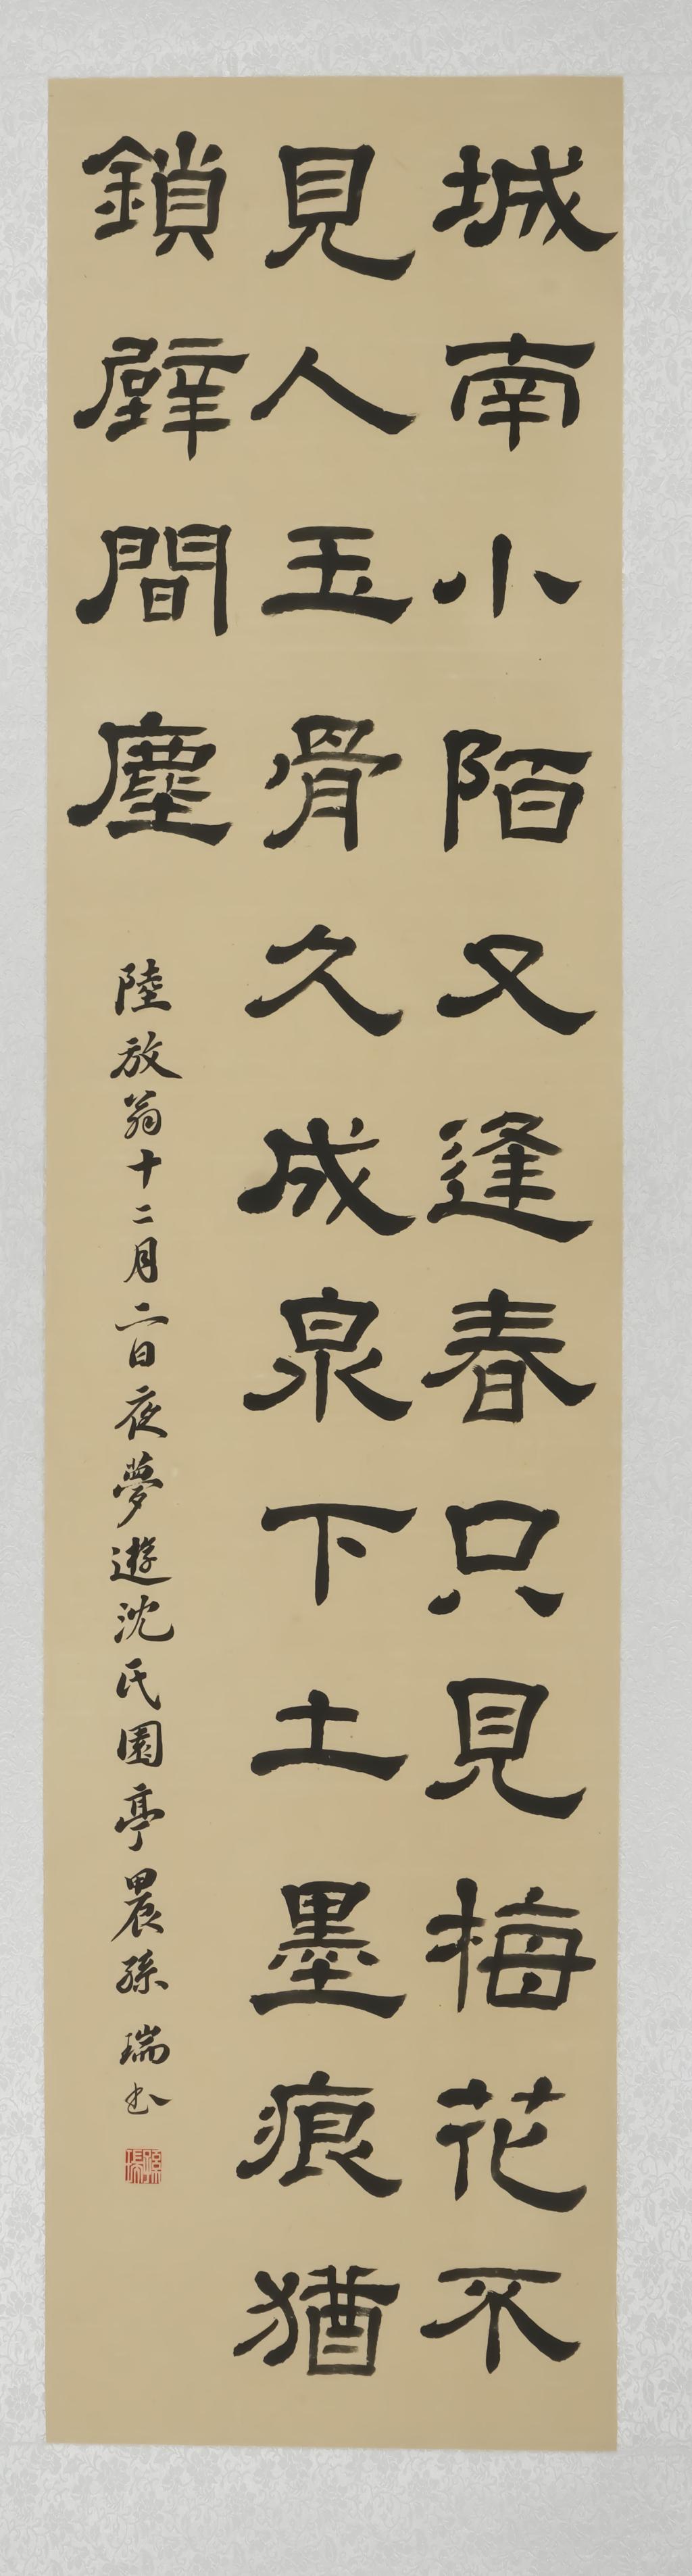 城南小陌又逢春只見梅花不
見人玉骨久成泉下土墨痕猶
鎖壁間塵
陸放翁十二月二日夜夢遊沈氏園亭晨孫瑞書
孫瑞